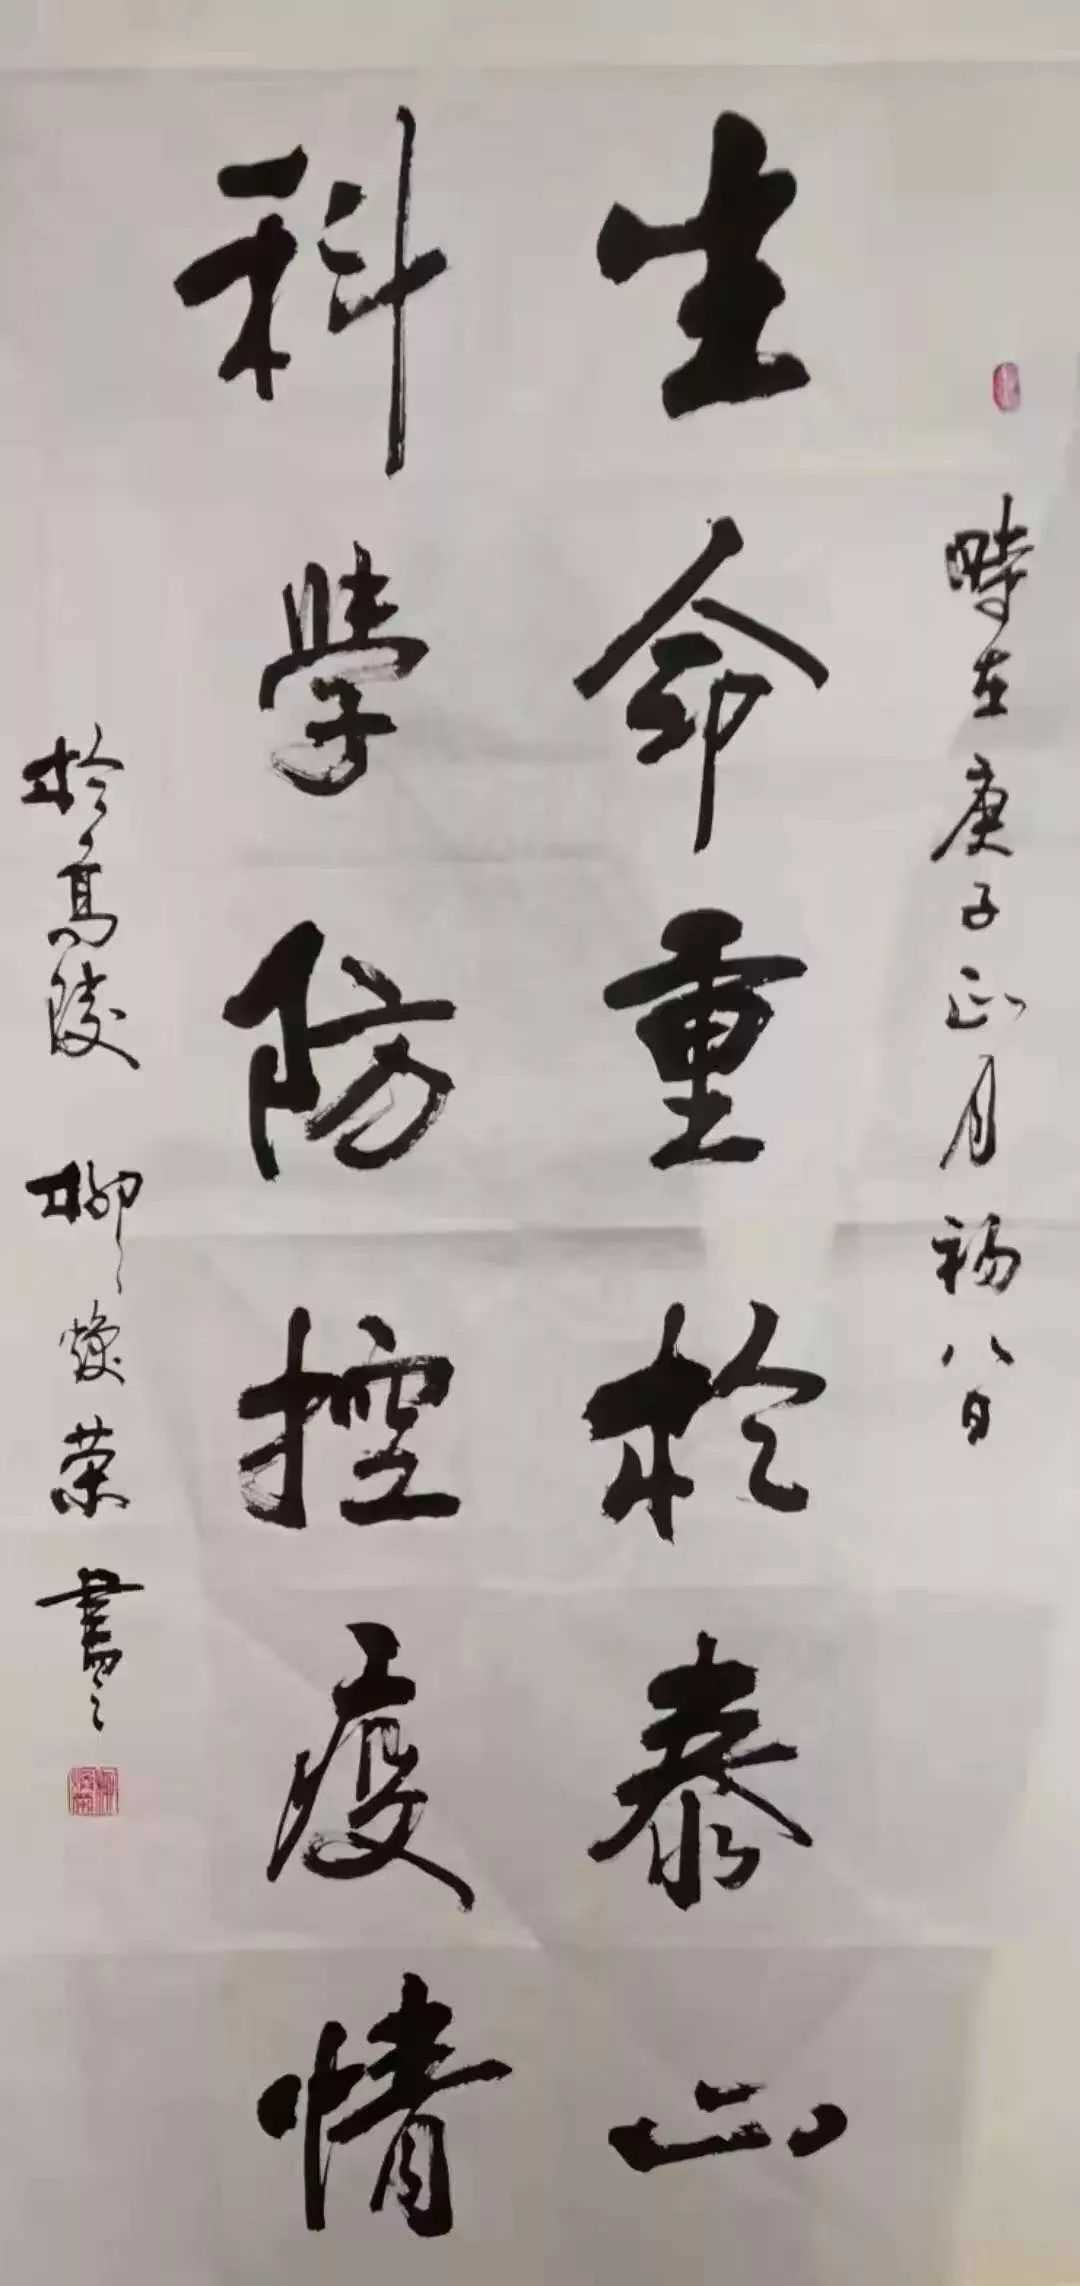 時在庚子正月初八日
生命重於泰山
科學防控疫情
於高陵 柳煥荣書之